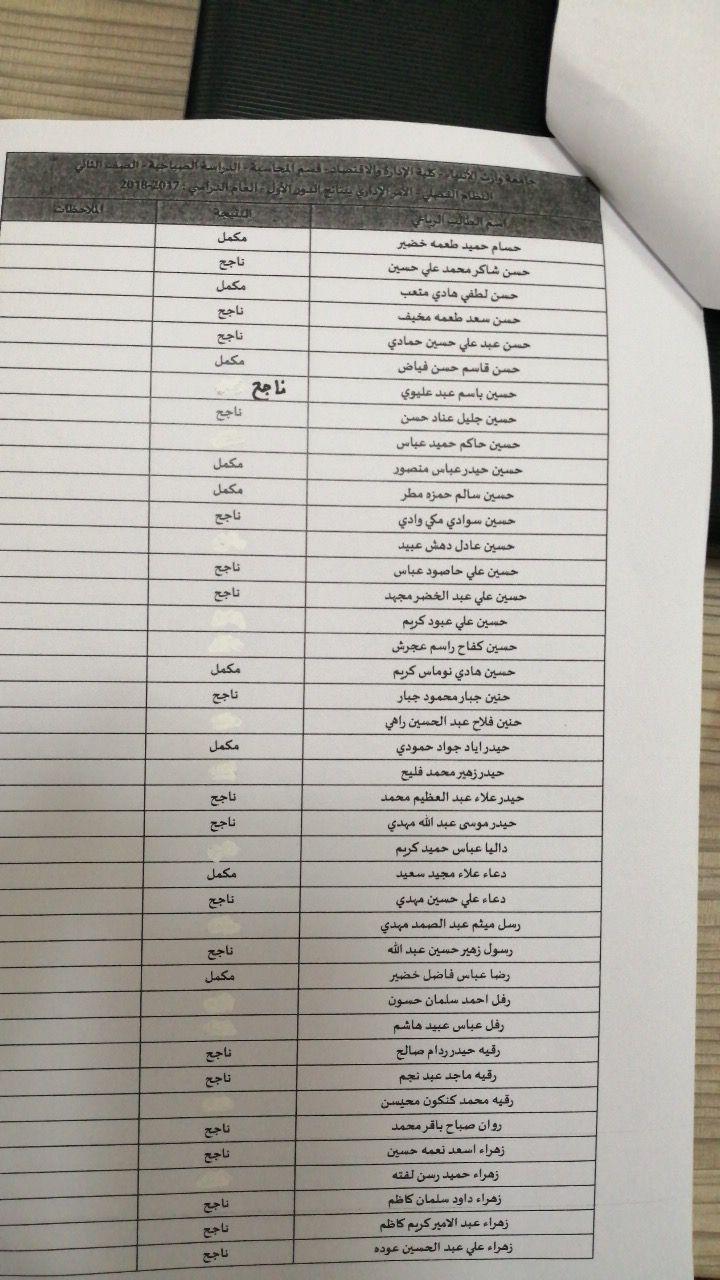 جامعة وارث الأنبياء - كلية الإدارة والاقتصاد - قسم المحاسبة - الدراسة الصباحية - الصف الثاني
النظام الفصلي - الأمر الإداري بنتائج الدور الأول - العام الدراسي : 2017-2018
اسم الطالب الرباعي النتيجة الملاحظات
حسام حميد طعمه خضير مكمل
حسن شاكر محمد علي حسين ناجح
حسن لطفي هادي متعب مكمل
حسن سعد طعمه مخيف ناجح
حسن عبد علي حسين حمادي ناجح
حسن قاسم حسن فياض مكمل
حسين باسم عبد عليوي ناجح
حسين جليل عناد حسن ناجح
حسين حاكم حميد عباس
حسين حيدر عباس منصور مكمل
حسين سالم حمزه مطر مكمل
حسين سوادي مكي وادي ناجح
حسين عادل دهش عبيد
حسين علي حاصود عباس ناجح
حسين علي عبد الخضر مجهد ناجح
حسين علي عبود كريم
حسين كفاح راسم عجرش
حسين هادي نوماس كريم مكمل
حنين جبار محمود جبار ناجح
حنين فلاح عبد الحسين راهي
حيدر اياد جواد حمودي مكمل
حيدر زهير محمد فليح
حيدر علاء عبد العظيم محمد ناجح
حيدر موسى عبد الله مهدي ناجح
داليا عباس حميد كريم
دعاء علاء مجيد سعيد مكمل
دعاء علي حسين مهدي ناجح
رسل ميثم عبد الصمد مهدي
رسول زهير حسين عبد الله ناجح
رضا عباس فاضل خضير مكمل
رفل احمد سلمان حسون
رفل عباس عبيد هاشم
رقيه حيدر ردام صالح ناجح
رقيه ماجد عبد نجم ناجح
رقيه محمد كنكون محيسن
روان صباح باقر محمد ناجح
زهراء اسعد نعمه حسين ناجح
زهراء حميد رسن لفته
زهراء داود سلمان كاظم ناجح
زهراء عبد الامير كريم كاظم ناجح
زهراء علي عبد الحسين عوده ناجح